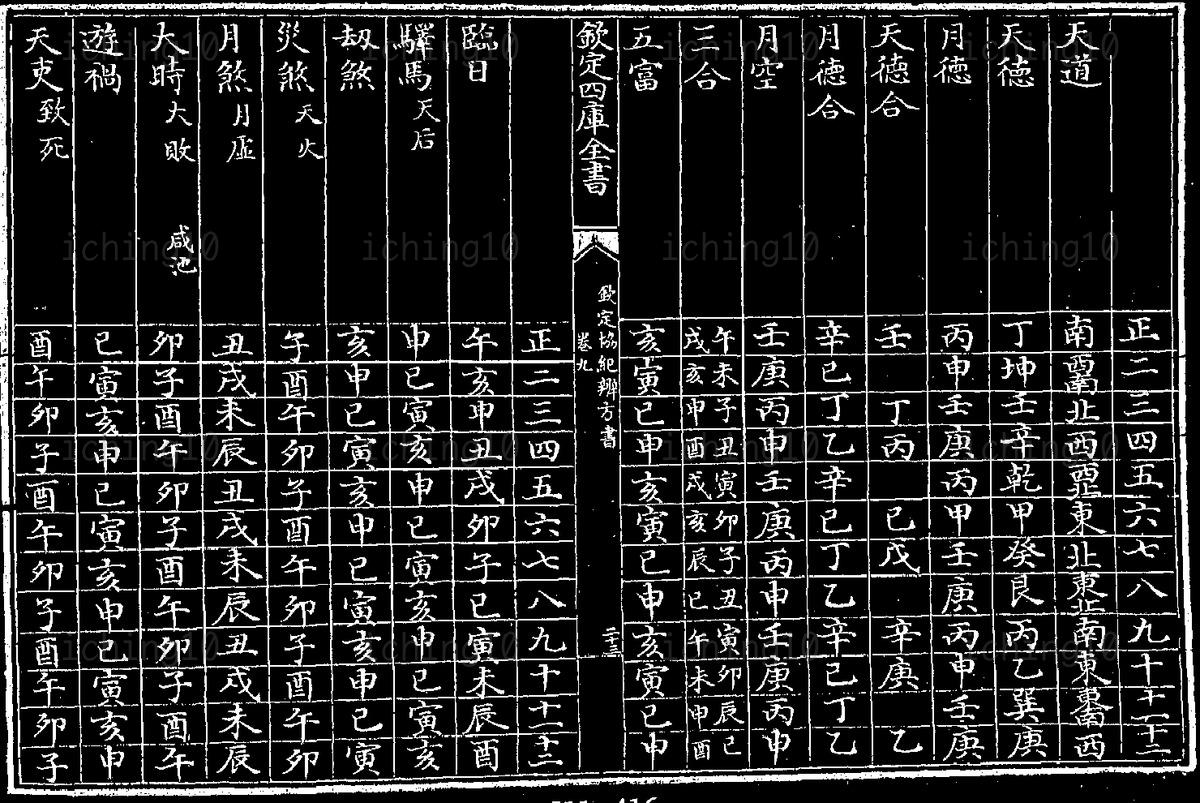 正 二 三 四 五 六 七 八 九 十 十一 十二
天道 南 西南 北 西 西北 東 北 東北 南 東 東南 西
天德 丁 坤 壬 辛 乾 甲 癸 艮 丙 乙 巽 庚
月德 丙 申 壬 庚 丙 甲 壬 庚 丙 申 壬 庚
天德合 壬 丁 丙 己 戊 辛 庚 乙
月德合 辛 己 丁 乙 辛 己 丁 乙 辛 己 丁 乙
月空 壬 庚 丙 申 壬 庚 丙 申 壬 庚 丙 申
三合 午戌 未亥 子申 丑酉 寅戌 卯亥 子辰 丑巳 寅午 卯未 辰申 巳酉
五富 亥 寅 巳 申 亥 寅 巳 申 亥 寅 巳 申
欽定四庫全書
欽定協紀辨方書
卷九
二十三
正 二 三 四 五 六 七 八 九 十 十一 十二
臨日 午 亥 申 丑 戌 卯 子 巳 寅 未 辰 酉
驛馬 天后 申 巳 寅 亥 申 巳 寅 亥 申 巳 寅 亥
刼煞 亥 申 巳 寅 亥 申 巳 寅 亥 申 巳 寅
災煞 天火 子 酉 午 卯 子 酉 午 卯 子 酉 午 卯
月煞 月虛 丑 戌 未 辰 丑 戌 未 辰 丑 戌 未 辰
大時 大敗 咸池 卯 子 酉 午 卯 子 酉 午 卯 子 酉 午
遊禍 巳 寅 亥 申 巳 寅 亥 申 巳 寅 亥 申
天吏 致死 酉 午 卯 子 酉 午 卯 子 酉 午 卯 子
iching10 iching10 iching10 iching10
iching10 iching10 iching10 iching10
iching10 iching10 iching10 iching10
iching10 iching10 iching10 iching10